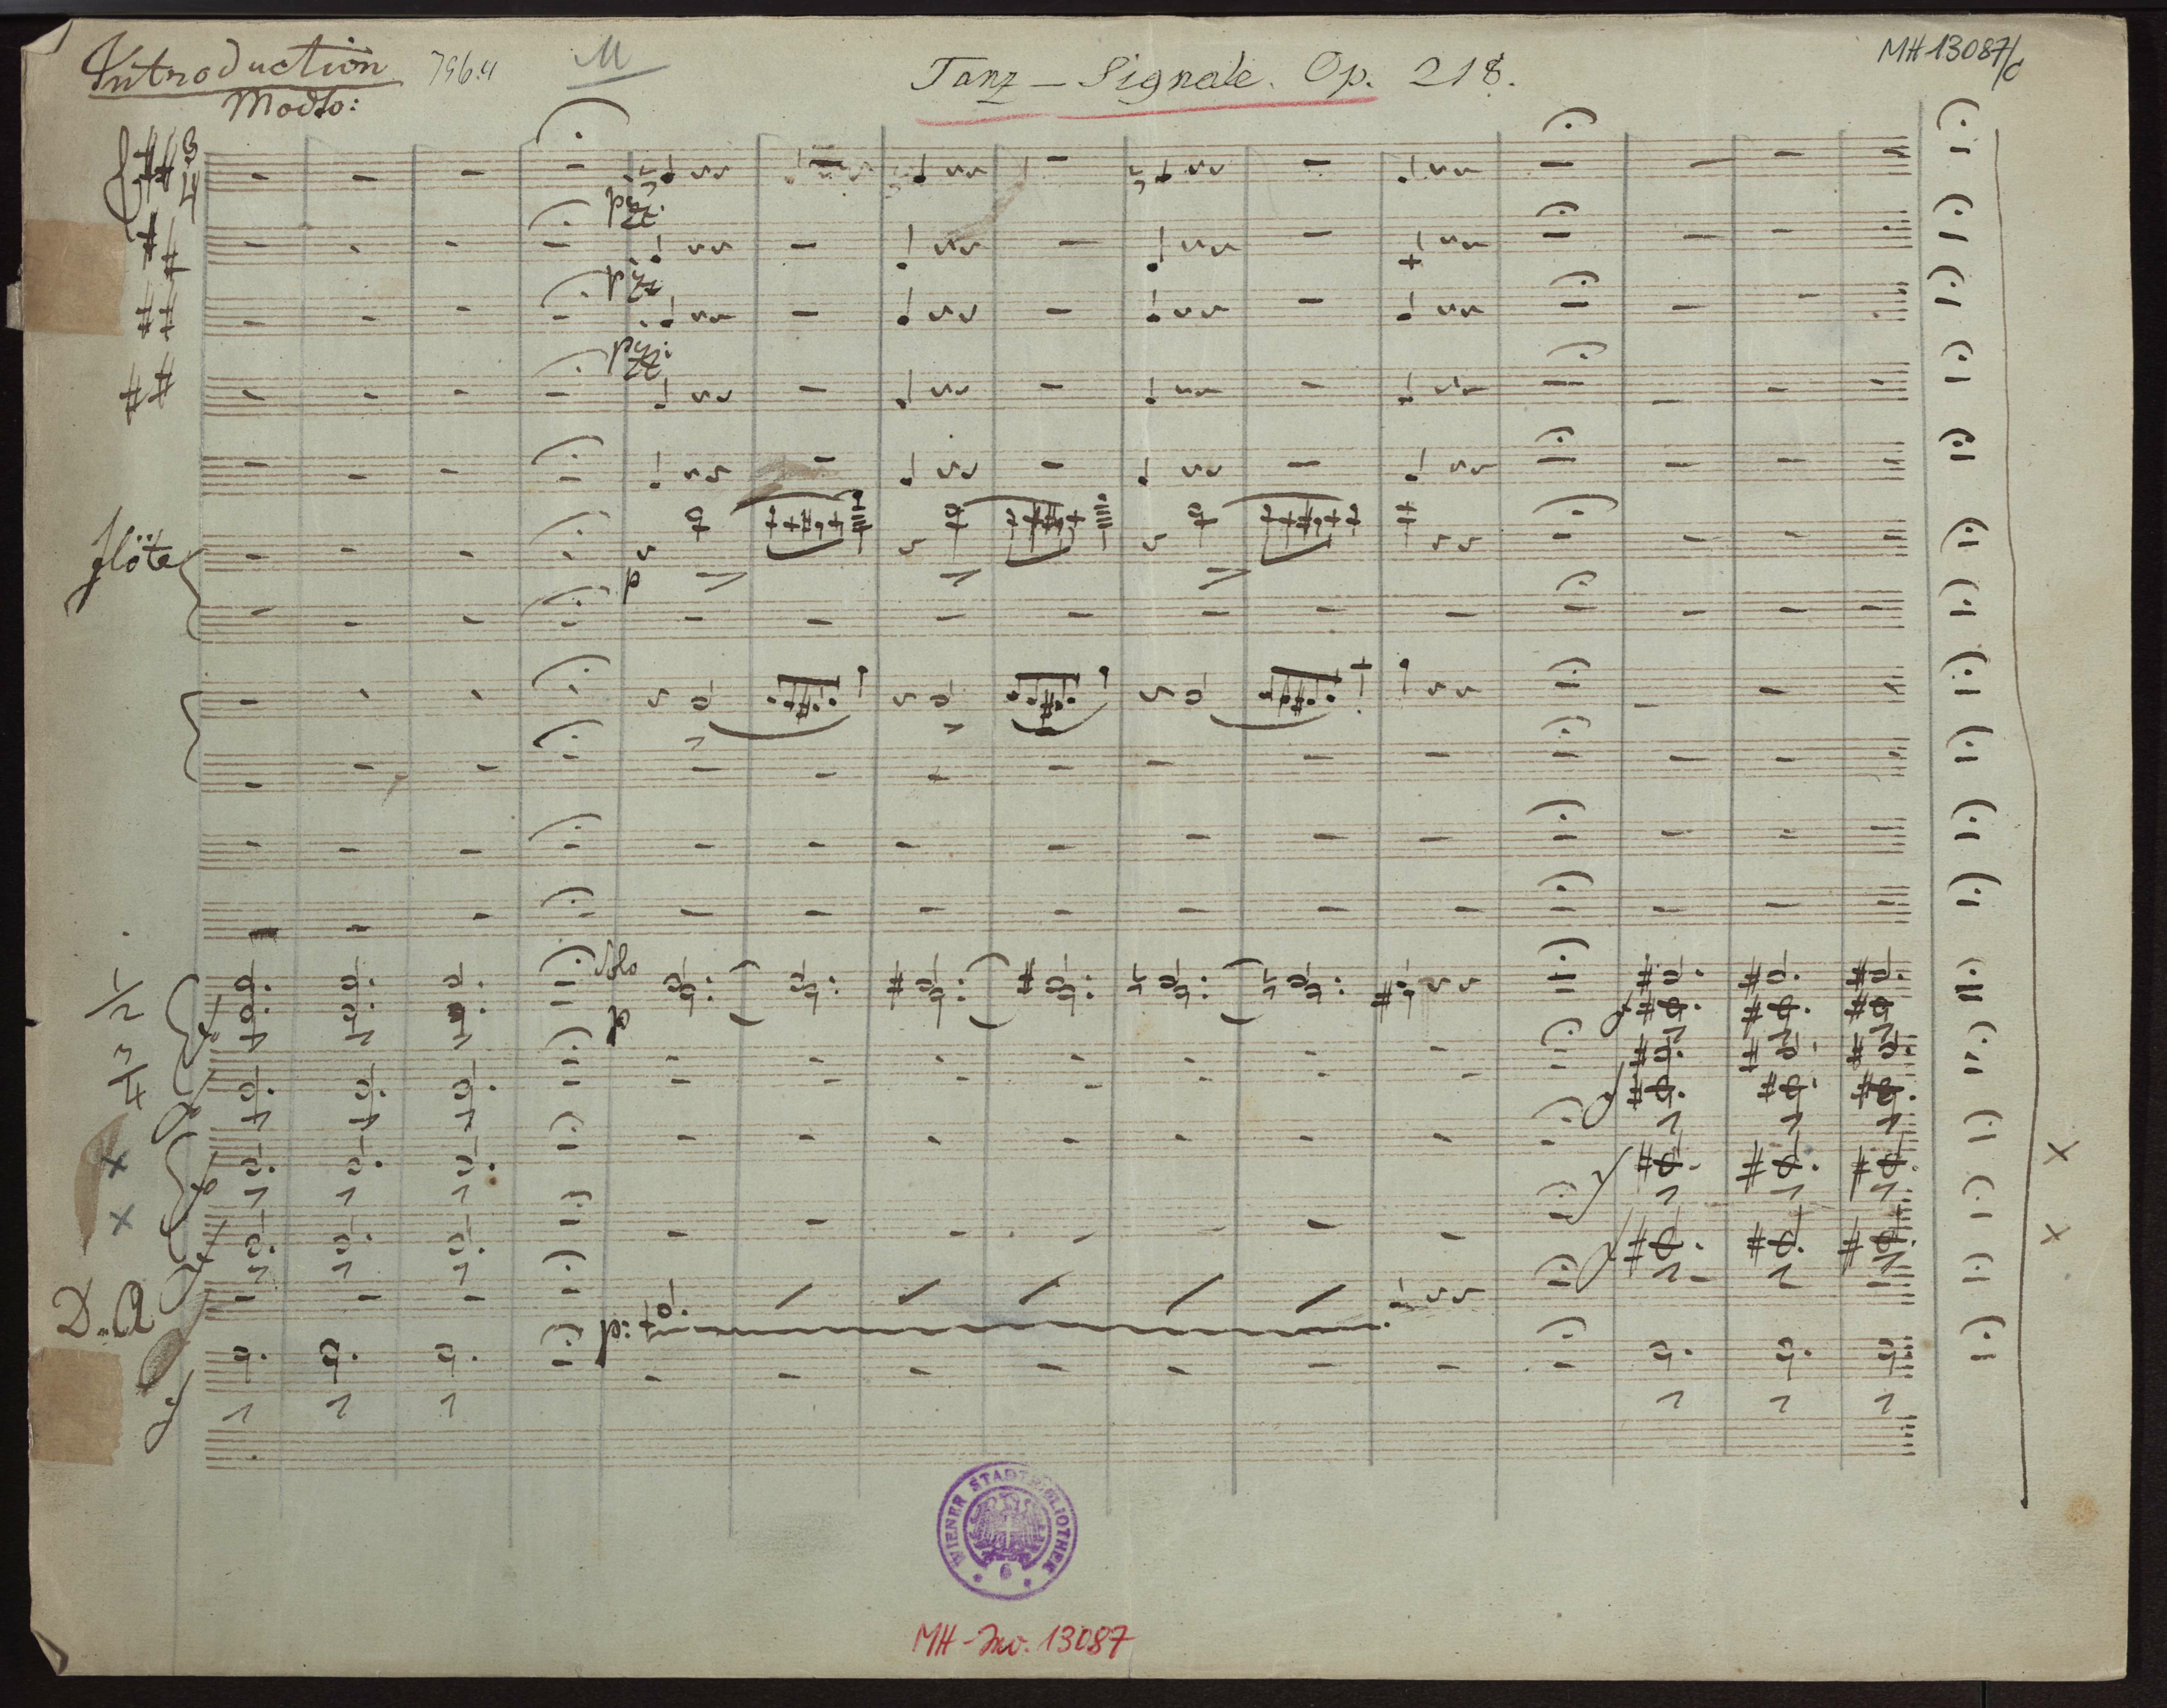 Introduction
Modto:
M
Tanz - Signale. Op. 218.
MH 13087/c
3
4
pizz:
pizz
pizz:
flöte
p
Solo
p
1/2
3/4
D. A
p:
WIENER STADTBIBLIOTHEK
6
MH-Inv. 13087